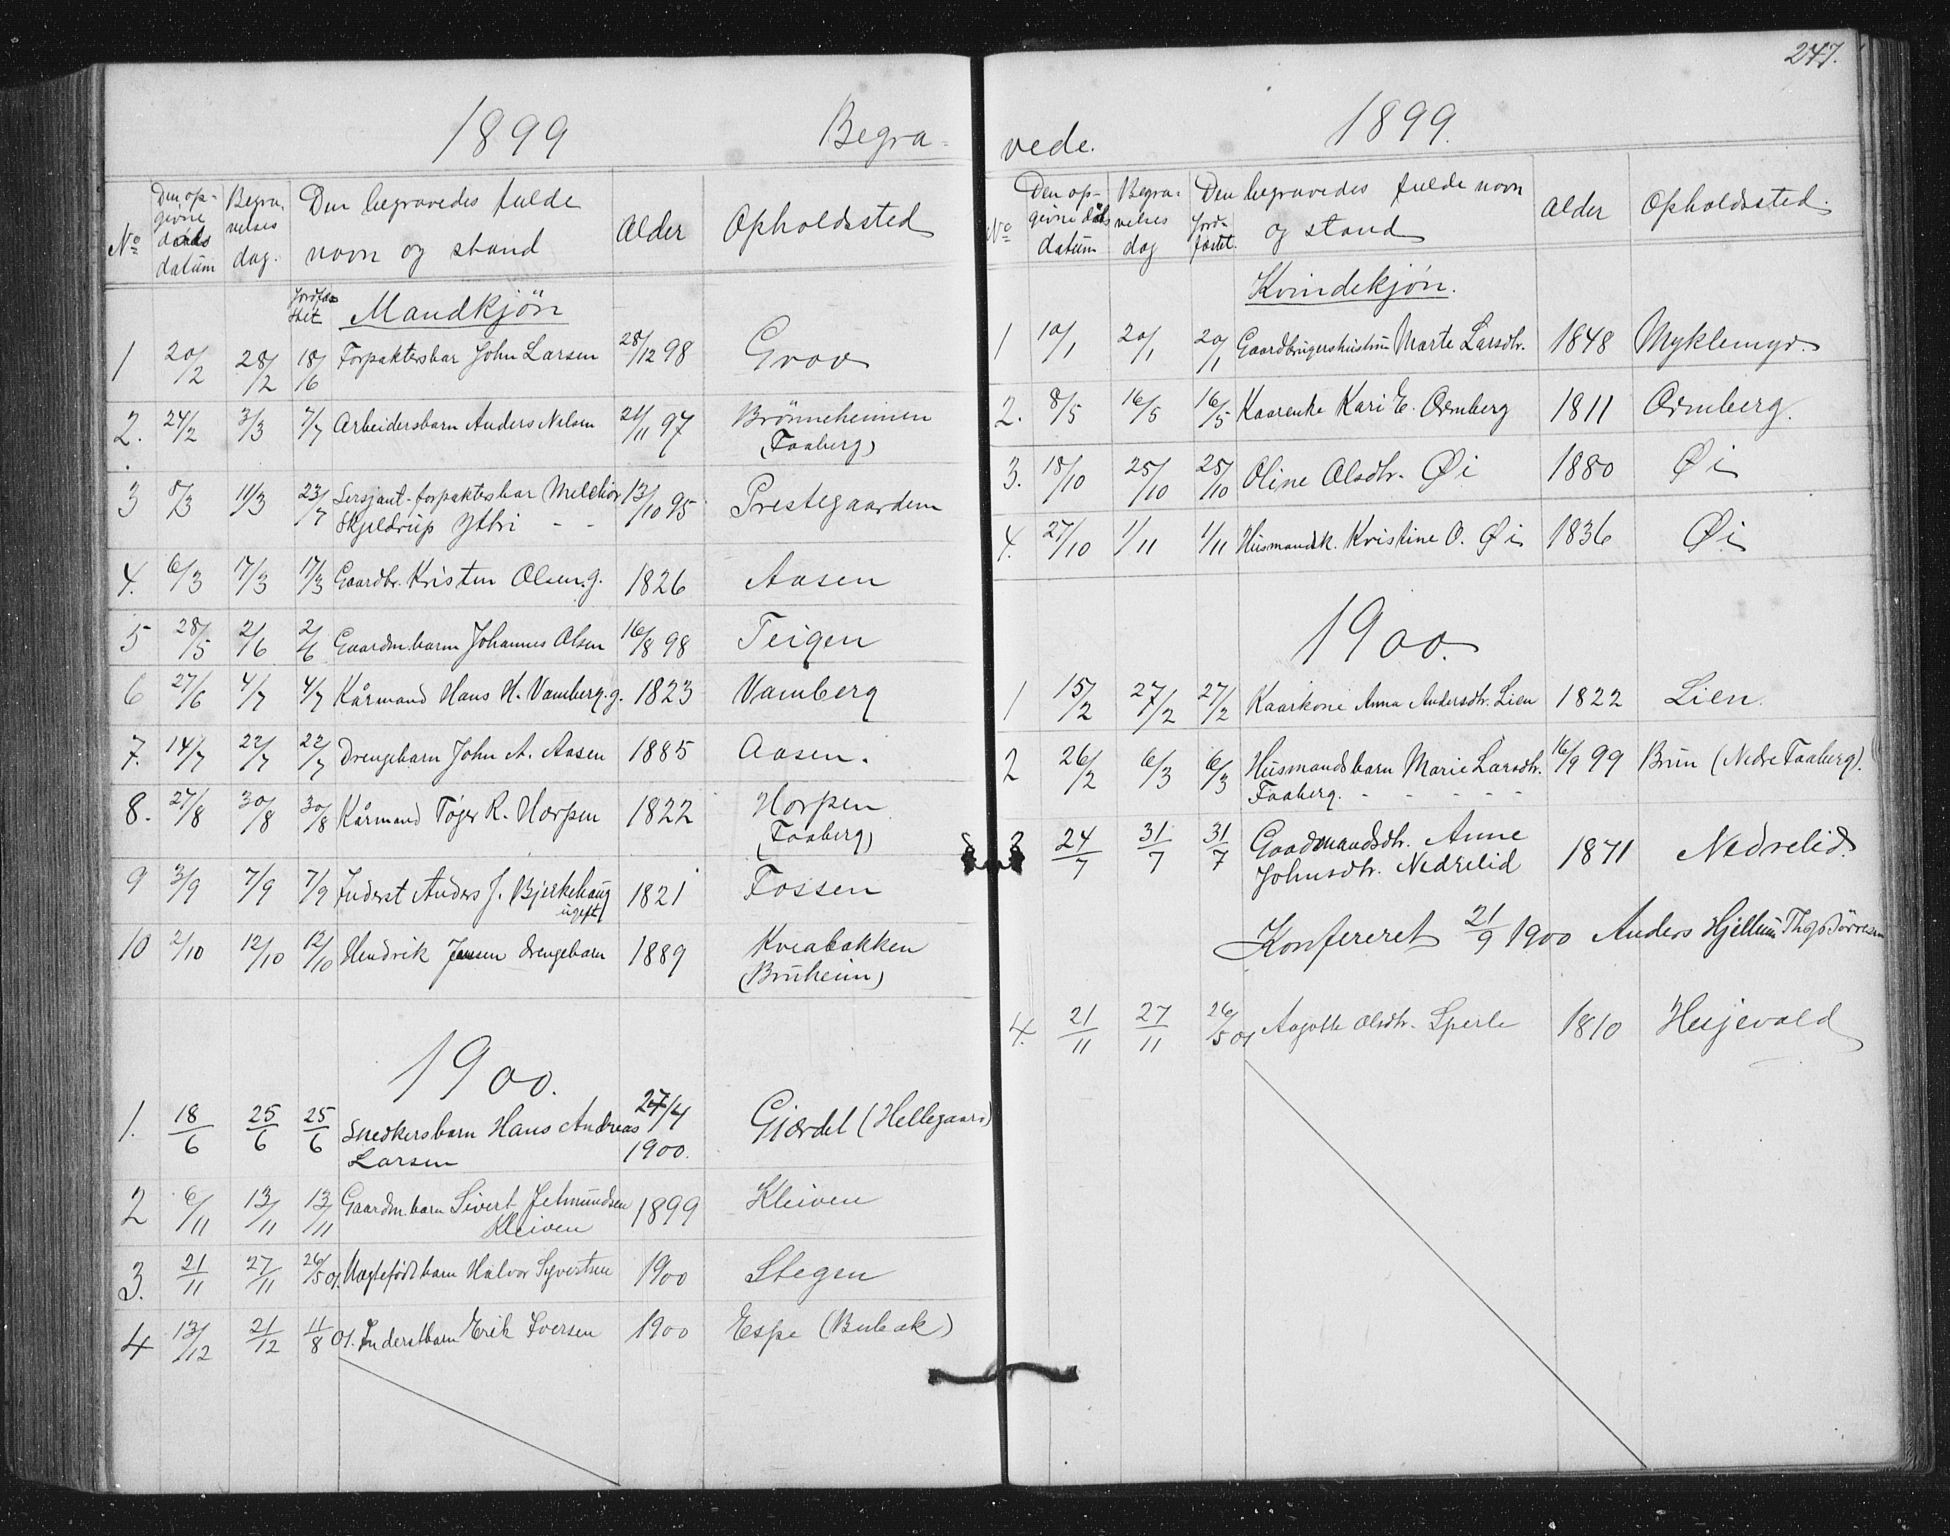 247.
1899 Begra-
No Den op-givne døds datum Begra-velses dag. Jordfæ-stet Den begravedes fulde navn og stand Alder Opholdssted
Mandkjön
1 20/2 28/2 18/6 Forpaktersbar John Larsen 28/12 98 Grov
2. 24/2 3/3 7/7 Arbeidersbarn Anders Nelsen 21/11 97 Brönneheimen
(Faaberg)
3 8/3 11/3 23/7 Sersjant-forpaktersbar Melchior 13/10 95 Prestegaarden
Skjeldrup Ythri - -
4. 6/3 17/3 17/3 Gaardbr. Kristen Olsen. g. 1826 Aasen
5 28/5 2/6 2/6 Gaardm.barn Johannes Olsen 16/8 98 Teigen
6 27/6 4/7 4/7 Kårmand Hans H. Vamberg. g. 1823 Vamberg
7. 14/7 22/7 22/7 Drengebarn John A. Aasen 1885 Aasen.
8. 27/8 30/8 30/8 Kårmand Töger R. Horpen 1822 Horpen
(Faaberg)
9 3/9 7/9 7/9 Inderst Anders J. Bjerkehaug 1821 Fossen
ugift
10 2/10 12/10 12/10 Hendrik Jensen drengebarn 1889 Kveabakken
(Bruheim)
1900.
1. 18/6 25/6 25/6 Snedkersbarn Hans Andreas 24/4 Gjærdet (Hellegaard)
Larsen 1900.
2 6/11 13/11 13/11 Gaardm.barn Sivert Jetmundsen 1899 Kleiven
Kleiven
3. 21/11 27/11 26/5 01. Uægtefödt barn Halvor Syvertsen 1900 Stegen
4 13/12 21/12 11/8 01. Inderstbarn Erik Iversen 1900 Espe (Bubak)
vede. 1899.
No Den op-givne døds datum Begra-velses dag Jord-fæstet. Den begravedes fulde navn og stand Alder Opholdssted.
Kvindekjön.
1 10/1 20/1 20/1 Gaardbrugershustru Marte Larsdtr. 1848 Myklemyr.
2. 8/5 16/5 16/5 Kaarenke Kari E. Ormberg 1811 Ormberg.
3. 18/10 25/10 25/10 Oline Olsdtr. Øi 1880 Øi
4. 27/10 1/11 1/11 Husmandsk. Kristine O. Øi 1836 Øi
1900.
1 15/2 27/2 27/2 Kaarkone Anna Andersdtr. Lien 1822 Lien.
2 26/2 6/3 6/3 Husmandsbarn Marie Larsdtr. 16/9 99 Brun (Nedre Faaberg).
Faaberg. - - - - -
3 24/7 31/7 31/7 Gaadmandsdtr. Anne 1871 Nedrelid.
Johnsdtr. Nedrelid
Konfereret 21/9 1900 Anders Hjellum
4. 21/11 27/11 26/5 01 Aagotte Olsdtr. Sperle 1810 Hesjevold